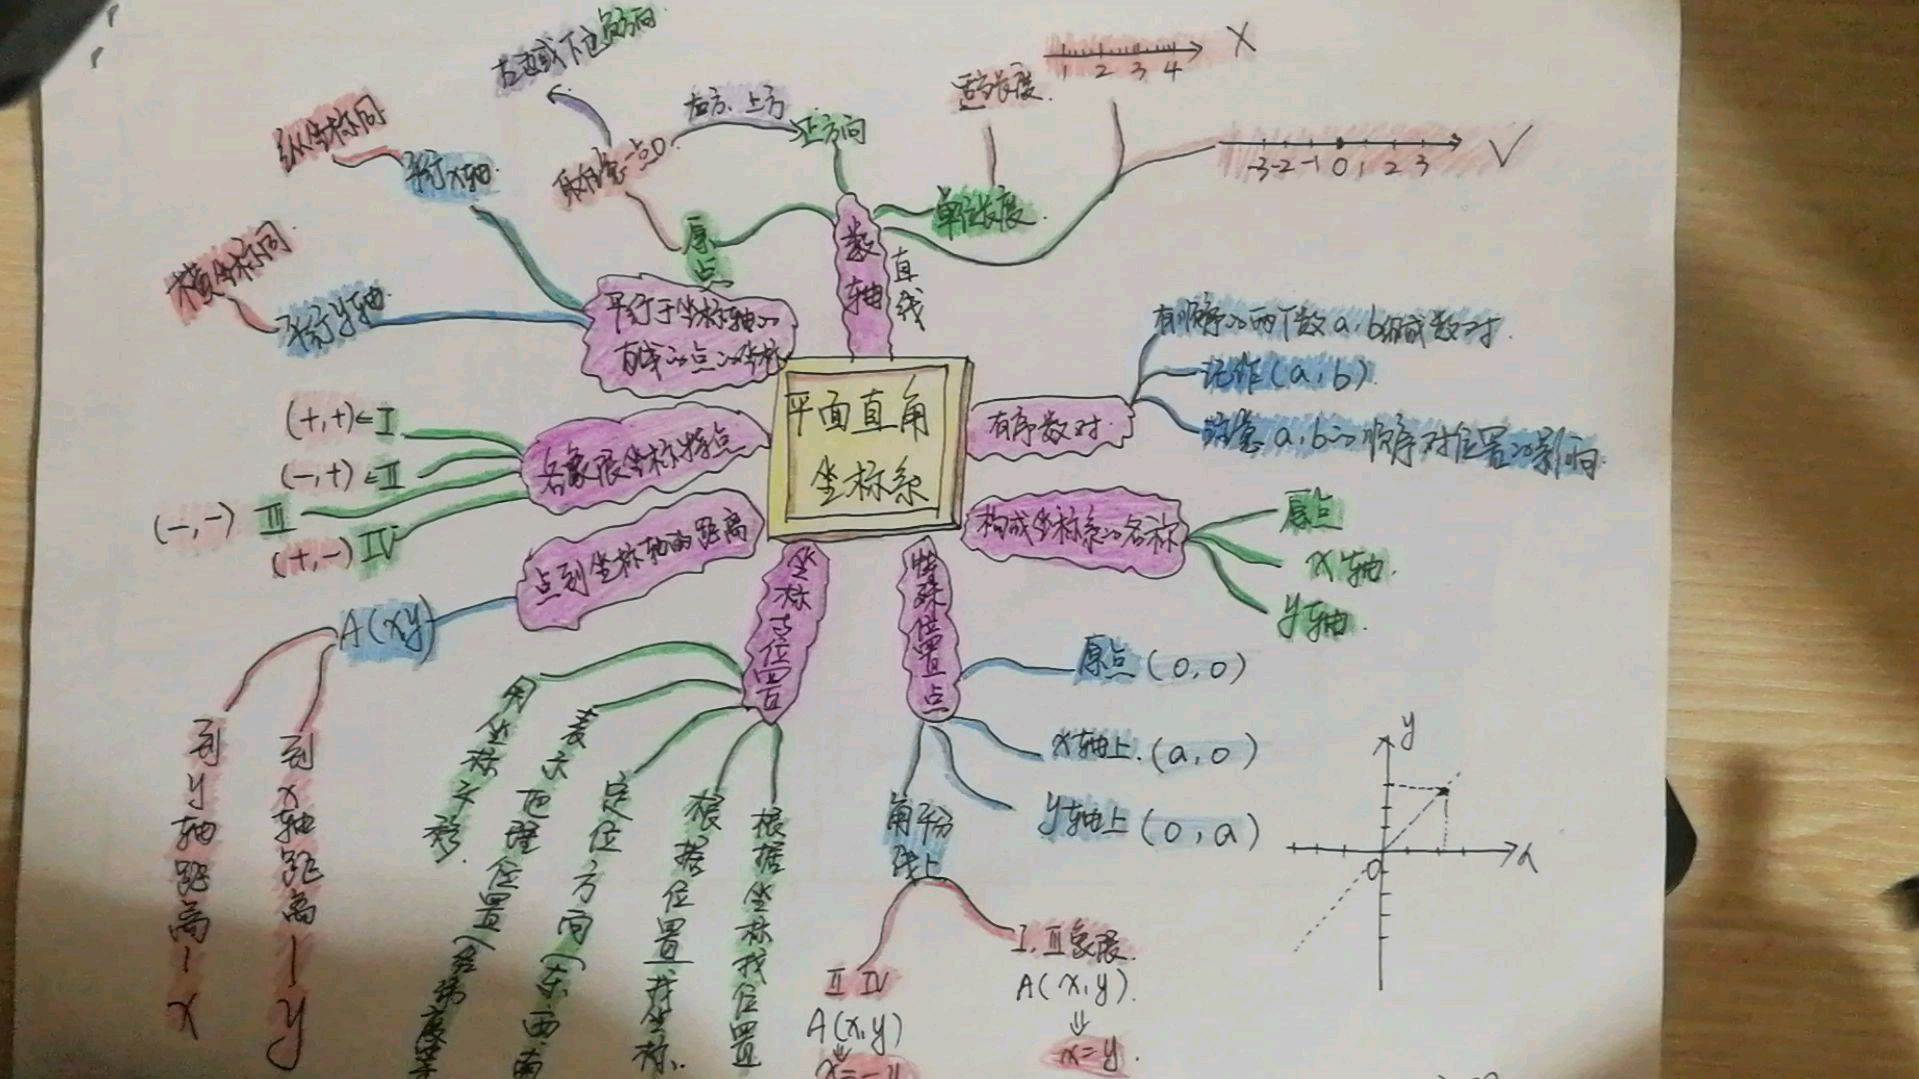 平面直角
坐标系
数轴
直线
原点
取任意一点O
右方、上方
正方向
单位长度
1 2 3 4
X
-3 -2 -1 0 1 2 3
√
有序数对
有顺序的两个数a,b组成数对.
记作(a,b)
注意a,b的顺序对位置的影响
构成坐标系的名称
原点
x轴.
y轴.
特殊位置点
原点(0,0)
x轴上.(a,0)
y轴上(0,a)
角平分
线上
Ⅰ,Ⅲ象限
A(x,y).
⇓
x=y.
Ⅱ Ⅳ
A(x,y)
⇓
x=-y
y
x
O
坐标与位置
根据坐标找位置
根据位置找坐标.
定位方向(东西南
表示地理位置(经纬度等
用坐标示移
点到坐标轴的距离
A(x,y)
到x轴距离—y
到y轴距离—x
各象限坐标特点
(+,+)⇐Ⅰ
(-,+)⇐Ⅱ
(-,-) Ⅲ
(+,-) Ⅳ
平行于坐标轴的
直线的点的坐标
平行x轴.
纵坐标同
平行y轴.
横坐标同